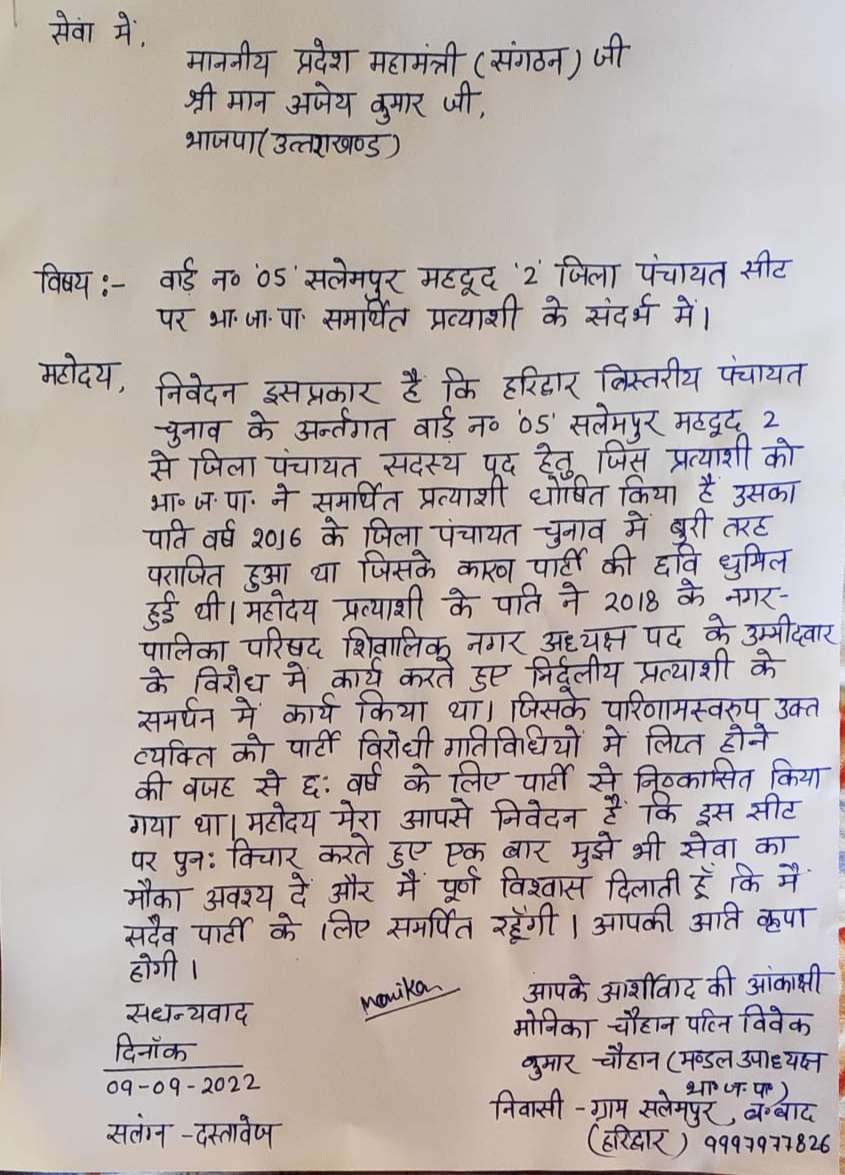 सेवा में,
माननीय प्रदेश महामंत्री (संगठन) जी
श्री मान अजेय कुमार जी,
भाजपा (उत्तराखण्ड)
विषय :- वार्ड न० '05' सलेमपुर महदूद '2' जिला पंचायत सीट
पर भा. जा. पा. समर्थित प्रत्याशी के संदर्भ में।
महोदय, निवेदन इसप्रकार है कि हरिद्वार त्रिस्तरीय पंचायत
चुनाव के अर्न्तगत वार्ड न० '05' सलेमपुर महदूद 2
से जिला पंचायत सदस्य पद हेतु जिस प्रत्याशी को
भा० ज. पा. ने समर्थित प्रत्याशी घोषित किया है उसका
पति वर्ष 2016 के जिला पंचायत चुनाव में बुरी तरह
पराजित हुआ था जिसके कारण पार्टी की छवि धुमिल
हुई थी। महोदय प्रत्याशी के पति ने 2018 के नगर-
पालिका परिषद शिवालिक नगर अध्यक्ष पद के उम्मीदवार
के विरोध में कार्य करते हुए निर्दलीय प्रत्याशी के
समर्थन में कार्य किया था। जिसके परिणामस्वरुप उक्त
व्यक्ति को पार्टी विरोधी गतिविधियों में लिप्त होने
की वजह से छ: वर्ष के लिए पार्टी से निष्कासित किया
गया था। महोदय मेरा आपसे निवेदन है कि इस सीट
पर पुन: विचार करते हुए एक बार मुझे भी सेवा का
मौका अवश्य दें और मैं पूर्ण विश्वास दिलाती हूँ कि मैं
सदैव पार्टी के लिए समर्पित रहूँगी। आपकी अति कृपा
होगी।
सधन्यवाद
दिनाँक
09-09-2022
सलंग्न - दस्तावेज
Monika
आपके आर्शीवाद की आंकाक्षी
मोनिका चौहान पत्नि विवेक
कुमार चौहान (मण्डल उपाध्यक्ष
भा० ज. पा.)
निवासी - ग्राम सलेमपुर,
(हरिद्वार) 9997977826